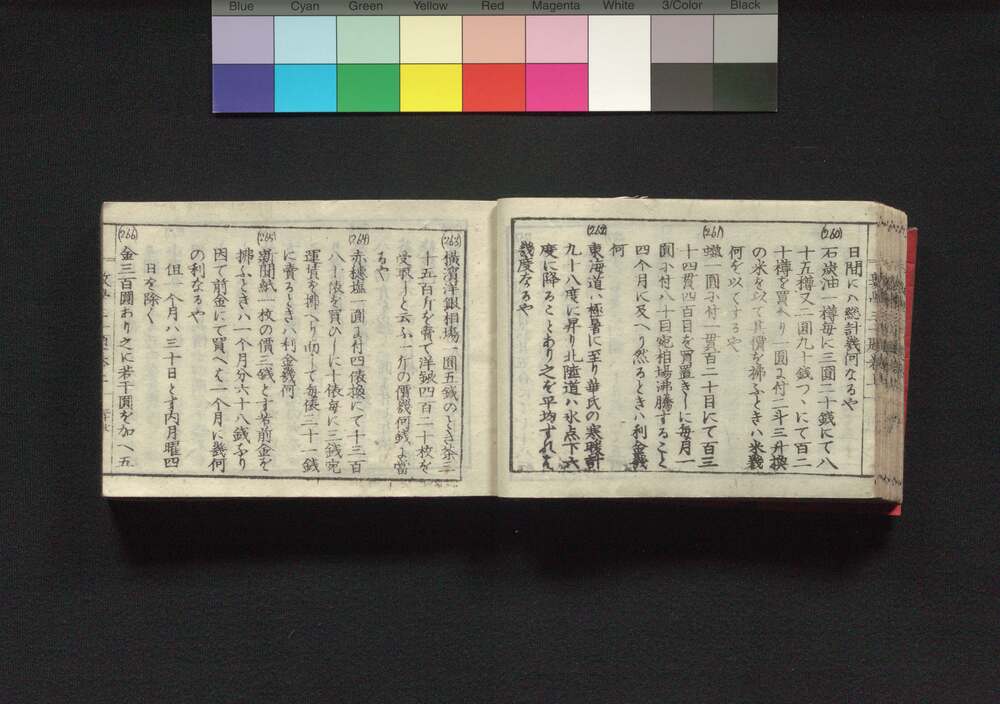 Blue Cyan Green Yellow Red Magenta White 3/Color Black
日間にハ總計幾何なるや
(260)
石炭油一樽毎に三圓二十錢にて八
十五樽又二圓九十錢つヽにて百二
十樽を買へり一圓に付二斗三升換
の米を以て其價を拂ふときハ米幾
何を以てするや
(261)
蠟一圓に付一貫百二十目にて百三
十四貫四百目を買置きしに毎月一
圓に付八十目宛相場沸騰すること
四個月に及へり然るときハ利金幾
何
(262)
東海道ハ極暑に至り華氏の寒暖計
九十八度に昇り北陸道ハ氷点下六
度に降ることあり之を平均すれは
幾度なるや
(263)
橫濱洋銀相場一圓五錢のとき茶三
十五百斤を賣て洋銀四百二十枚を
受取りしと云ふ一斤の價幾何錢に當
るや
(264)
赤穗塩一圓に付四俵換にて千三百
八十俵を買ひしに十俵毎に三錢宛
運賃を拂へり而して毎俵三十一錢
に賣るときハ利金幾何
(265)
新聞紙一枚の價三錢とす若前金を
拂ふときハ一个月分六十八錢なり
因て前金にて買へは一个月に幾何
の利なるや
但一个月ハ三十日とす内月曜四
日を除く
(266)
金三百圓あり之に若干圓を加へ五